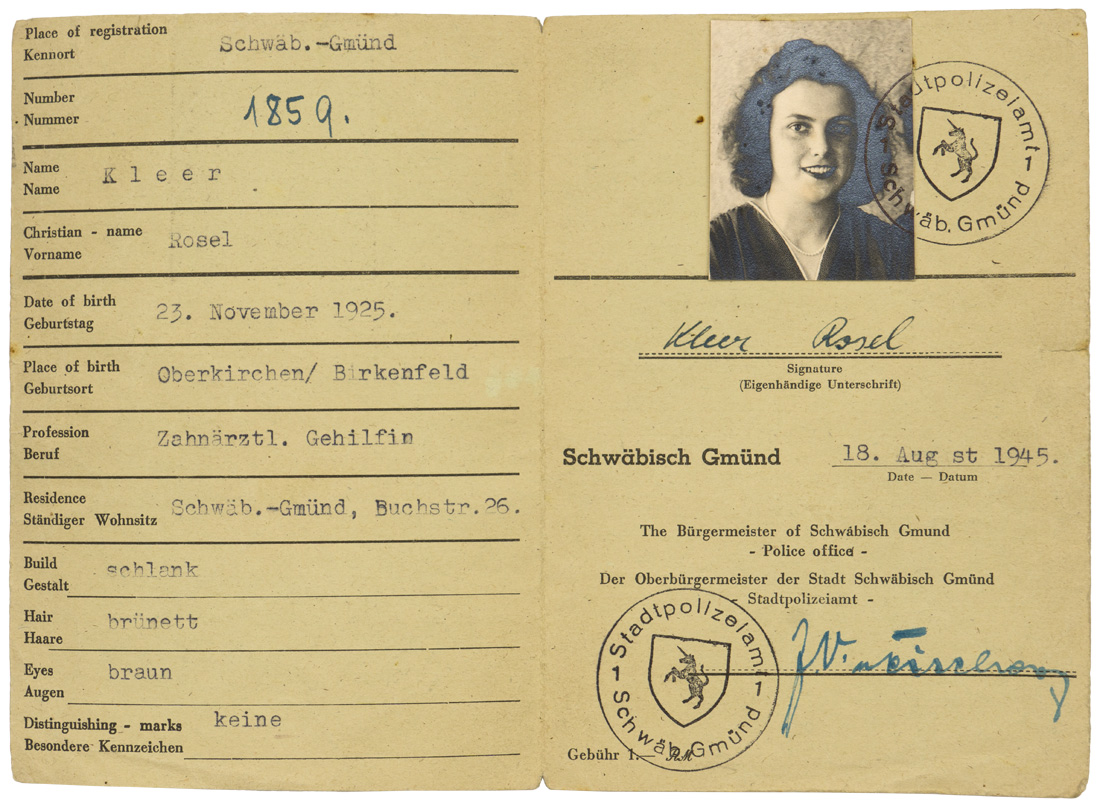 Place of registration
Kennort
Schwäb.-Gmünd
Number
Nummer
1859.
Name
Name
Kleer
Christian - name
Vorname
Rosel
Date of birth
Geburtstag
23. November 1925.
Place of birth
Geburtsort
Oberkirchen/ Birkenfeld
Profession
Beruf
Zahnärztl. Gehilfin
Residence
Ständiger Wohnsitz
Schwäb.-Gmünd, Buchstr.26.
Build
Gestalt
schlank
Hair
Haare
brünett
Eyes
Augen
braun
Distinguishing - marks
Besondere Kennzeichen
keine
Stadtpolizeiamt
1 1
Schwäb. Gmünd
Kleer Rosel
Signature
(Eigenhändige Unterschrift)
Schwäbisch Gmünd
18. Aug st 1945.
Date — Datum
The Bürgermeister of Schwäbisch Gmund
- Police office -
Der Oberbürgermeister der Stadt Schwäbisch Gmünd
- Stadtpolizeiamt -
Stadtpolizeiamt
1 1
Schwäb. Gmünd
J.V.
Gebühr 1.— RM